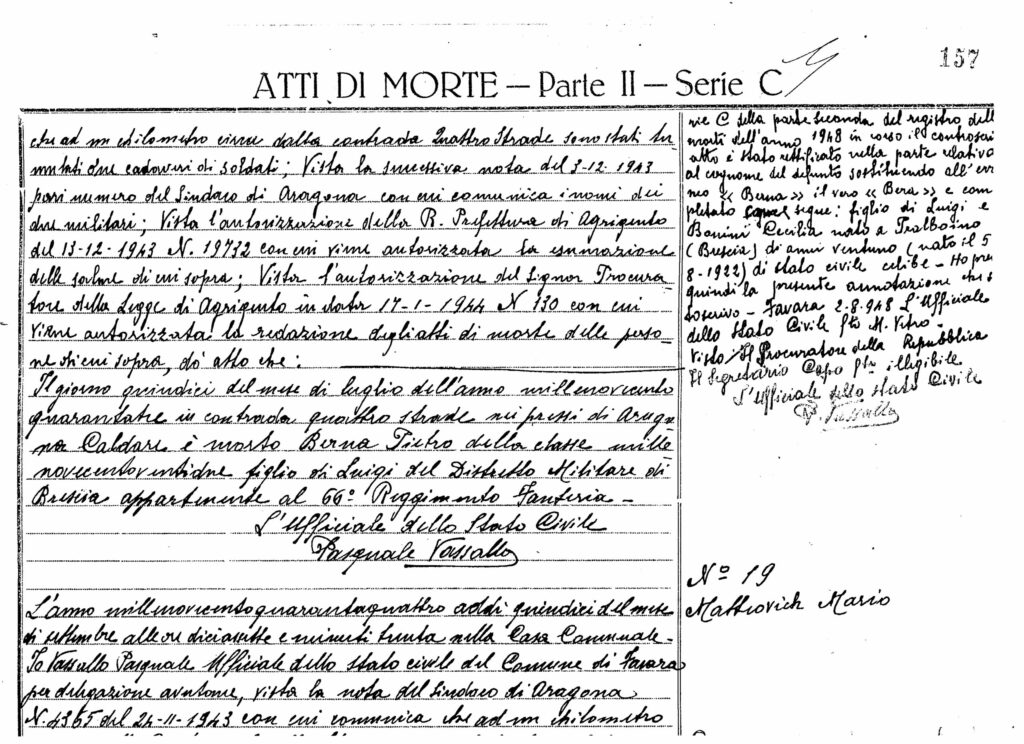 157
ATTI DI MORTE — Parte II — Serie C
che ad un chilometro circa dalla contrada Quattro Strade sono stati tu
mulati due cadaveri di soldati; Vista la successiva nota del 3-12-1943
pari numero del Sindaco di Aragona con cui comunica i nomi dei
due militari; Vista l'autorizzazione della R. Prefettura di Agrigento
del 13-12-1943 N. 19732 con cui viene autorizzata la esumazione
delle salme di cui sopra; Vista l'autorizzazione del Signor Procura
tore della Legge di Agrigento in data 17-1-1944 N 130 con cui
viene autorizzata la redazione degli atti di morte delle perso
ne di cui sopra, dò atto che:
Il giorno quindici del mese di luglio dell'anno millenovecento
quarantatre in contrada quattro strade nei pressi di Arago
na Caldare è morto Berna Pietro della classe mille
novecentoventidue figlio di Luigi del Distretto Militare di
Brescia appartenente al 66° Reggimento Fanteria —
L'Ufficiale dello Stato Civile
Pasquale Vassallo
L'anno millenovecentoquarantaquattro addì quindici del mese
di settembre alle ore diciassette e minuti trenta nella Casa Comunale.
Io Vassallo Pasquale Ufficiale dello stato civile del Comune di Favara
per delegazione avutane, vista la nota del Sindaco di Aragona
N. 4365 del 24-11-1943 con cui comunica che ad un chilometro
rie C della parte seconda del registro dell
morti dell'anno 1948 in corso il controscri
atto è stato rettificato nella parte relativa
al cognome del defunto sostituendo all'err
neo « Berna » il vero « Bera » e com
pletato come segue: figlio di Luigi e
Bonini Cecilia nato a Tralboino
(Brescia) di anni ventuno (nato il 5
8-1922) di stato civile celibe — Ho pre
quindi la presente annotazione che s
toscrivo — Favara 2-8-948 L'Ufficiale
dello Stato Civile fto M. Vitro —
Visto Il Procuratore della Repubblica
Il Segretario Capo fto illegibile
L'Ufficiale dello stato Civile
P. Vassallo
N° 19
Matteovich Mario